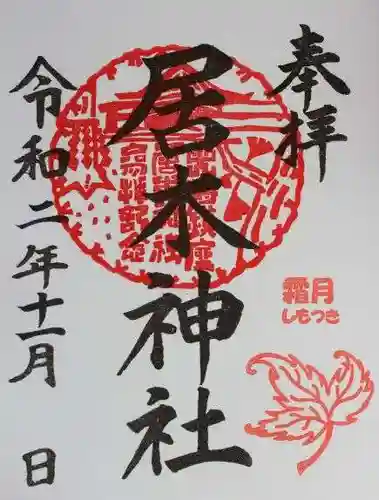 奉拝
居木神社
令和二年十一月 日
霜月
しもつき